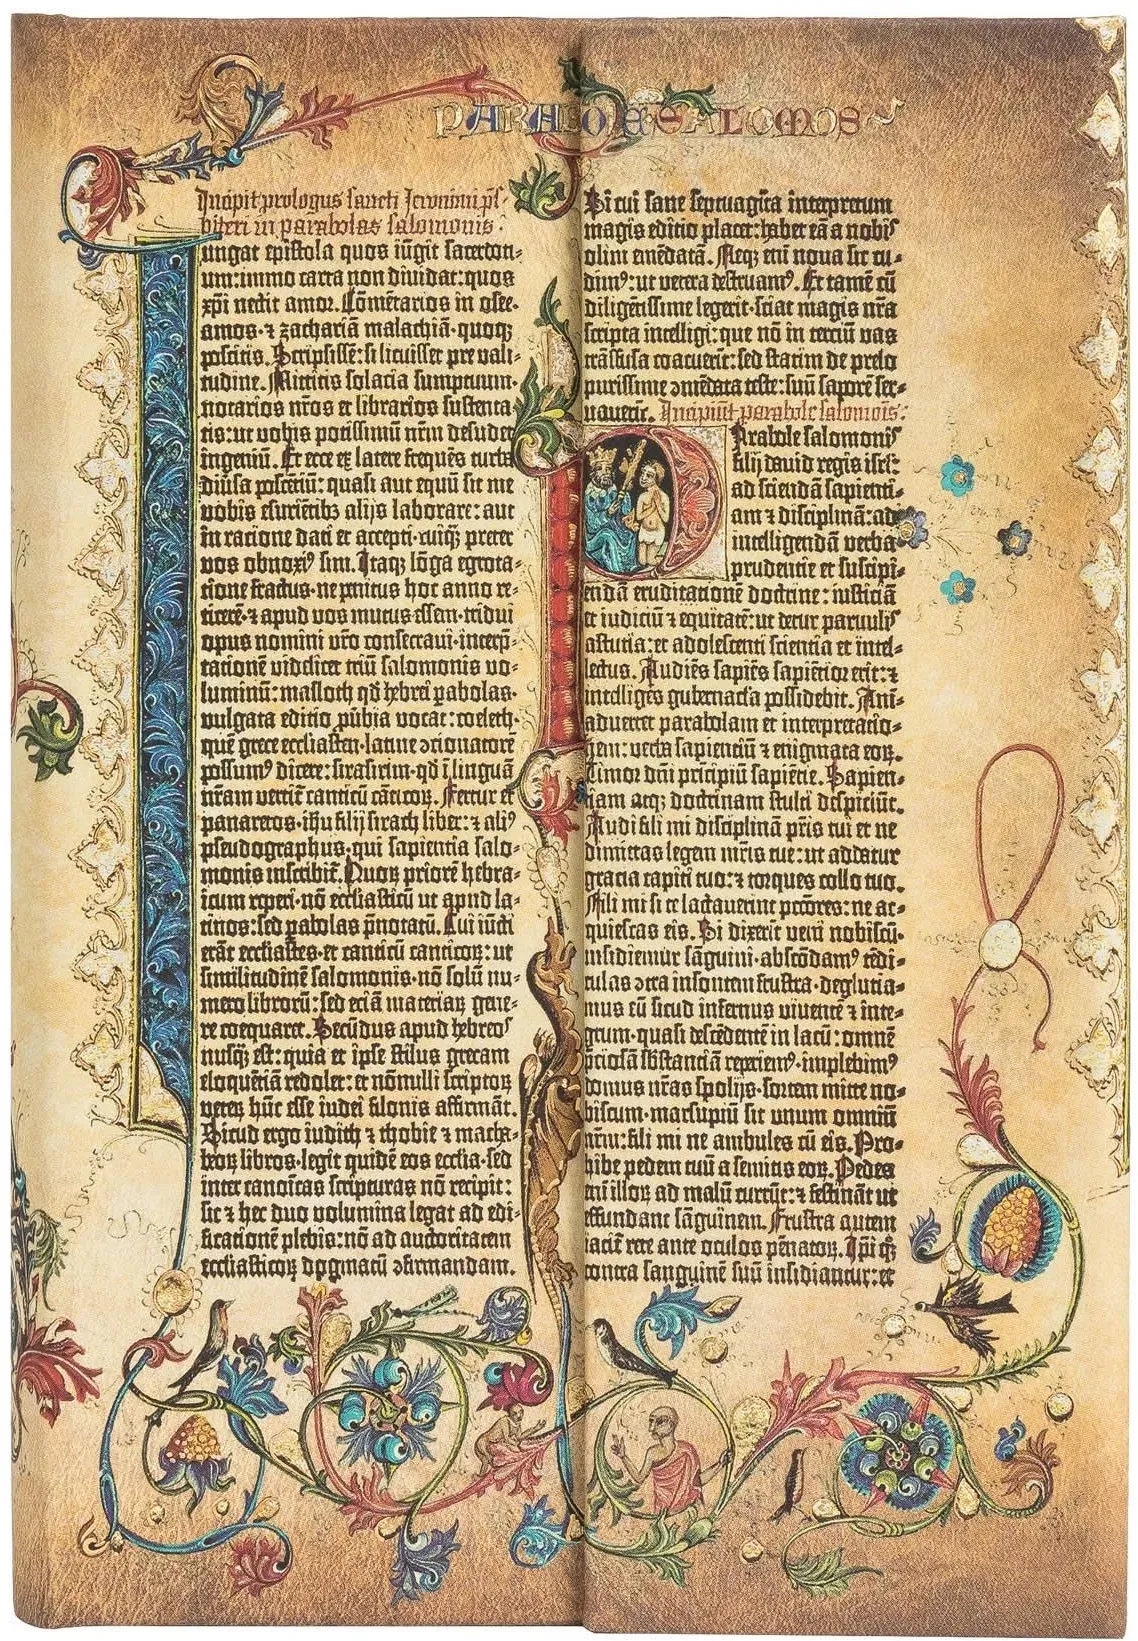 PARABOLE SALOMOIS
Incipit prologus sancti Jeronimi ps-
biteri in parabolas salomonis.
Iungat epistola quos iũgit sacerdoti-
um: immo carta non dividat: quos
xp̃i nectit amor. Cõmẽtarios in osee.
amos. ⁊ zachariã malachiã. quoq;
poscitis. Scripsissẽ: si licuisset pre vali-
tudine. Mittitis solacia sumptuum.
notarios nr̃os et librarios sustenta-
tis: ut vobis potissimũ nr̃m desudet
ingeniũ. Et ecce ex latere frequẽs turba
diũsa poscẽtiũ: quasi aut equũ sit me
vobis esuriẽtibꝫ alijs laborare: aut
in racione dati et accepti. cuiq̃ꝫ preter
vos obnoxi⁹ sim. Itaqꝫ lõga egrota-
cione fractus. ne penitus hoc anno re-
ticerẽ. ⁊ apud vos mutus essem. tridui
opus nomini vr̃o consecravi. interp̃-
tationẽ videlicet triũ salomonis vo-
luminũ: masloth qd̃ hebrei ꝑabolas.
vulgata editio ꝓṽbia vocat: coeleth.
quẽ grece ecclesiasten. latine ↄcionatorẽ
possum⁹ dicere: sirasirim. qd̃ ĩ linguã
nr̃am vertit̃ canticũ cãticoꝝ. Fertur et
panaretos. ihũ filij sirach liber: ⁊ ali⁹
pseudographus. qui sapientia salo-
monis inscribit̃. Quoꝝ priorẽ hebra-
icum reperi. nõ ecclesiasticũ ut apud la-
tinos: sed ꝑabolas p̃notatũ. Cui iũcti
erãt ecclesiastes. et canticũ canticoꝝ: ut
similitudinẽ salomonis. nõ solũ nu-
mero librorũ: sed eciã materiaꝝ gene-
re coequaret. Secũdus apud hebreos
nusq̃ꝫ est: quia et ipse stilus grecam
eloquẽtiã redolet: et nõnulli scriptoꝝ
veteꝝ hũc esse iudei filonis affirmãt.
Sicud ergo iudith ⁊ thobie ⁊ macha-
beoꝝ libros. legit quidẽ eos ecclesia. sed
inter canoĩcas scripturas nõ recipit:
sic ⁊ hec duo volumina legat ad edi-
ficationẽ plebis: nõ ad auctoritatem
ecclesiasticoꝝ dogmatũ ↄfirmandam.
Si cui sane septuagĩta interpretum
magis editio placet: habet eã a nobis
olim emẽdatã. Neqꝫ enĩ nova sic cu-
dim⁹: ut vetera destruam⁹. Et tamẽ cũ
diligẽtissime legerit. sciat magis nr̃a
scripta intelligi: que nõ in terciũ vas
trãsfusa coacuerĩt: sed statim de prelo
purissime ↄmẽdata teste: suũ saporẽ ser-
vaverĩt. Incipiũt parabole salomois.
Parabole salomonis
filij david regis isrl̃:
ad sciendã sapienti-
am ⁊ disciplinã: ad
intelligendã verba
prudentie et suscipi-
endã eruditationẽ doctrine: iusticiã
et iudiciũ ⁊ equitatẽ: ut detur parvulis
astutia: et adolescenti sciẽtia et intel-
lectus. Audiẽs sapiẽs sapiẽtior erit: ⁊
intelligẽs gubernacl̃a possidebit. Ani-
advertet parabolam et interpretatio-
nem: verba sapientiũ ⁊ enigmata eoꝝ.
Timor dñi prĩcipiũ sapiẽtie. Sapien-
tiam atqꝫ doctrinam stulti despiciũt.
Audi fili mi disciplinã pr̃is tui et ne
dimittas legem mr̃is tue: ut addatur
gracia capiti tuo: ⁊ torques collo tuo.
Fili mi si te lactaverint pctõres: ne ac-
quiescas eis. Si dixerĩt veni nobiscũ.
insidiemur sãguini. abscõdam⁹ tẽdi-
culas ↄtra insontem frustra. deglutia-
mus eũ sicud infernus viventẽ ⁊ inte-
grum. quasi descẽdentẽ in lacũ: omnẽ
p̃ciosã s̃bstanciã reperiem⁹. implebim⁹
domus nr̃as spolijs. sortem mitte no-
biscum. marsupiũ sit unum omniũ
nr̃m: fili mi ne ambules cũ eis. Pro-
hibe pedem tuũ a semitis eoꝝ. Pedes
enĩ illoꝝ ad malũ currũt: ⁊ festinãt ut
effundant sãguinem. Frustra autem
iacit̃ rete ante oculos pẽnatoꝝ. Ipi q̃ꝫ
contra sanguinẽ suũ insidiantur: et